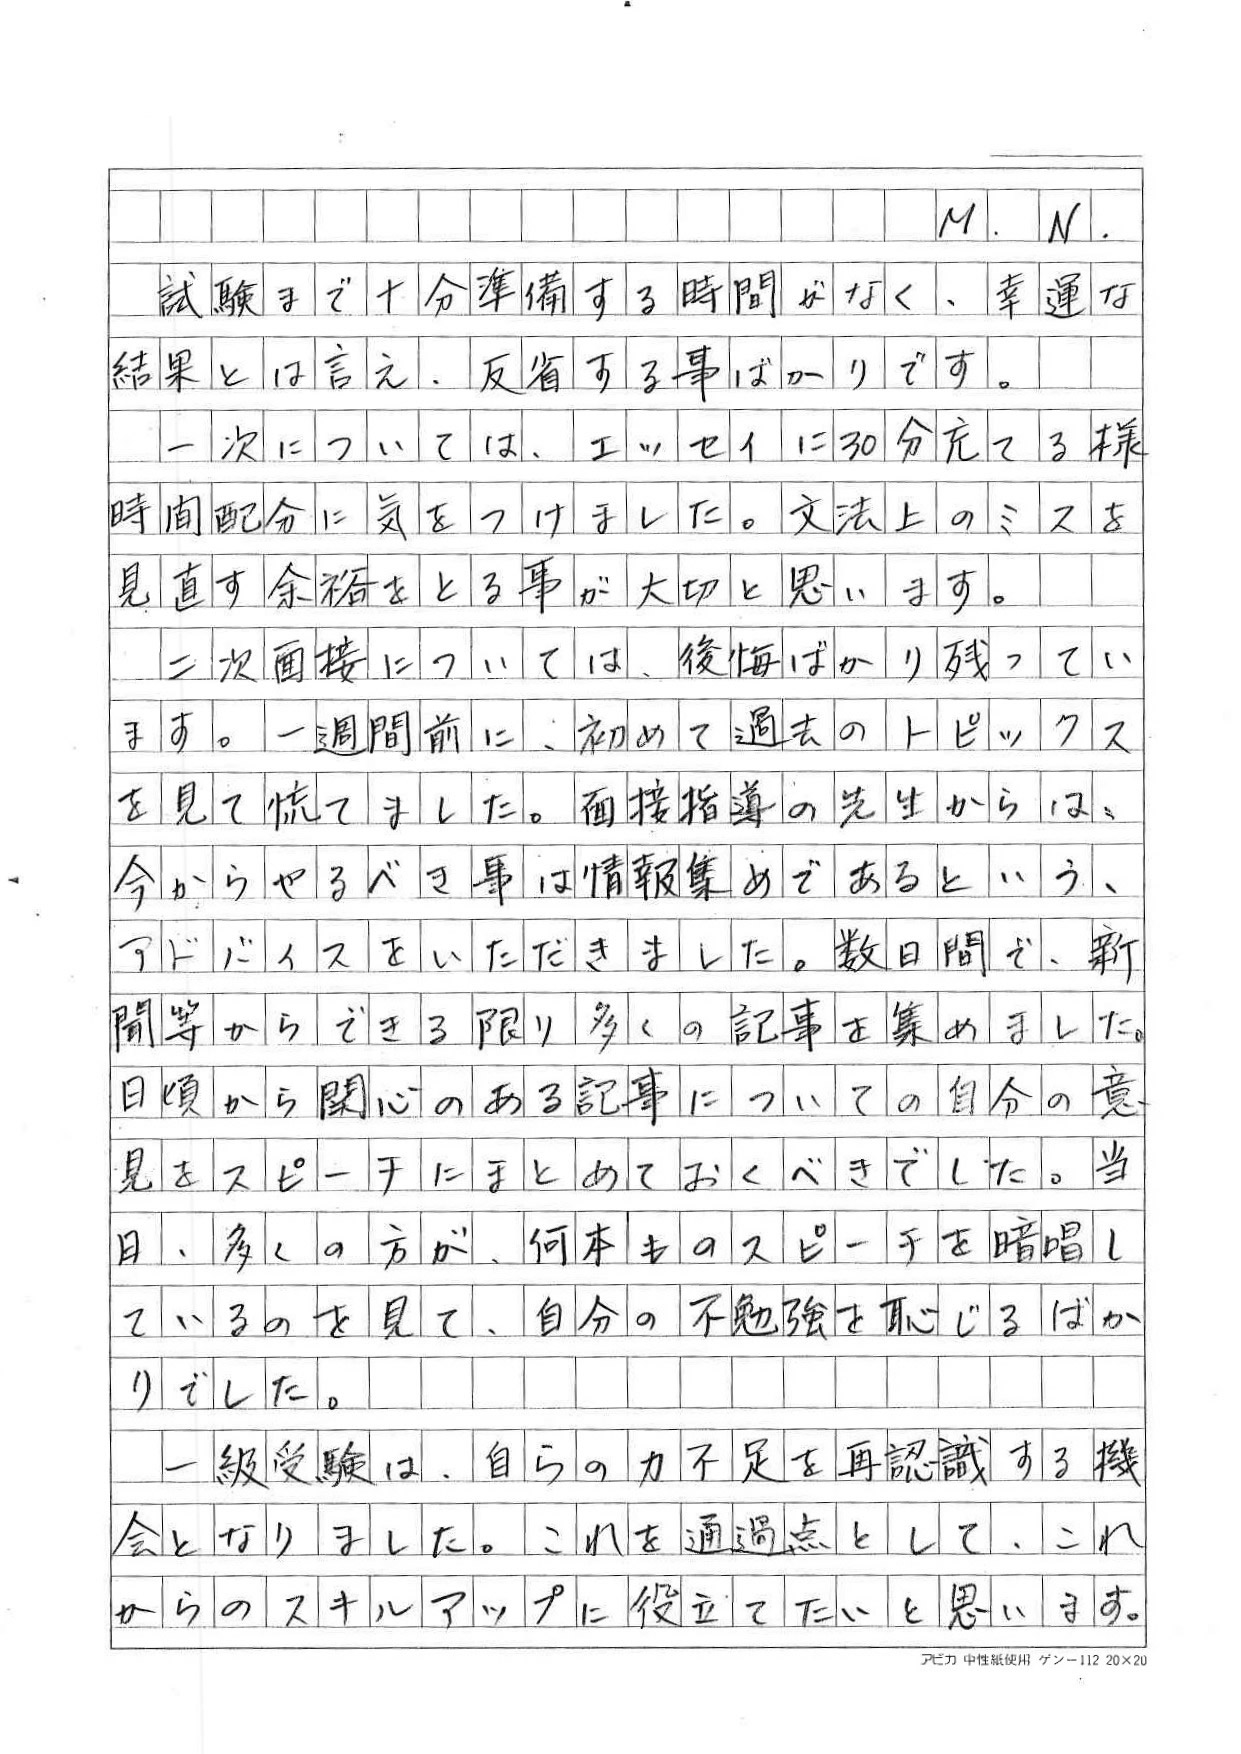 M. N.
試験まで十分準備する時間がなく、幸運な
結果とは言え、反省する事ばかりです。
一次については、エッセイに30分充てる様
時間配分に気をつけました。文法上のミスを
見直す余裕をとる事が大切と思います。
二次面接については、後悔ばかり残ってい
ます。一週間前に、初めて過去のトピックス
を見て慌てました。面接指導の先生からは、
今からやるべき事は情報集めであるという、
アドバイスをいただきました。数日間で、新
聞等からできる限り多くの記事を集めました。
日頃から関心のある記事についての自分の意
見をスピーチにまとめておくべきでした。当
日、多くの方が、何本ものスピーチを暗唱し
ているのを見て、自分の不勉強を恥じるばか
りでした。
一級受験は、自らの力不足を再認識する機
会となりました。これを通過点として、これ
からのスキルアップに役立てたいと思います。
アピカ 中性紙使用 ゲンー112 20×20